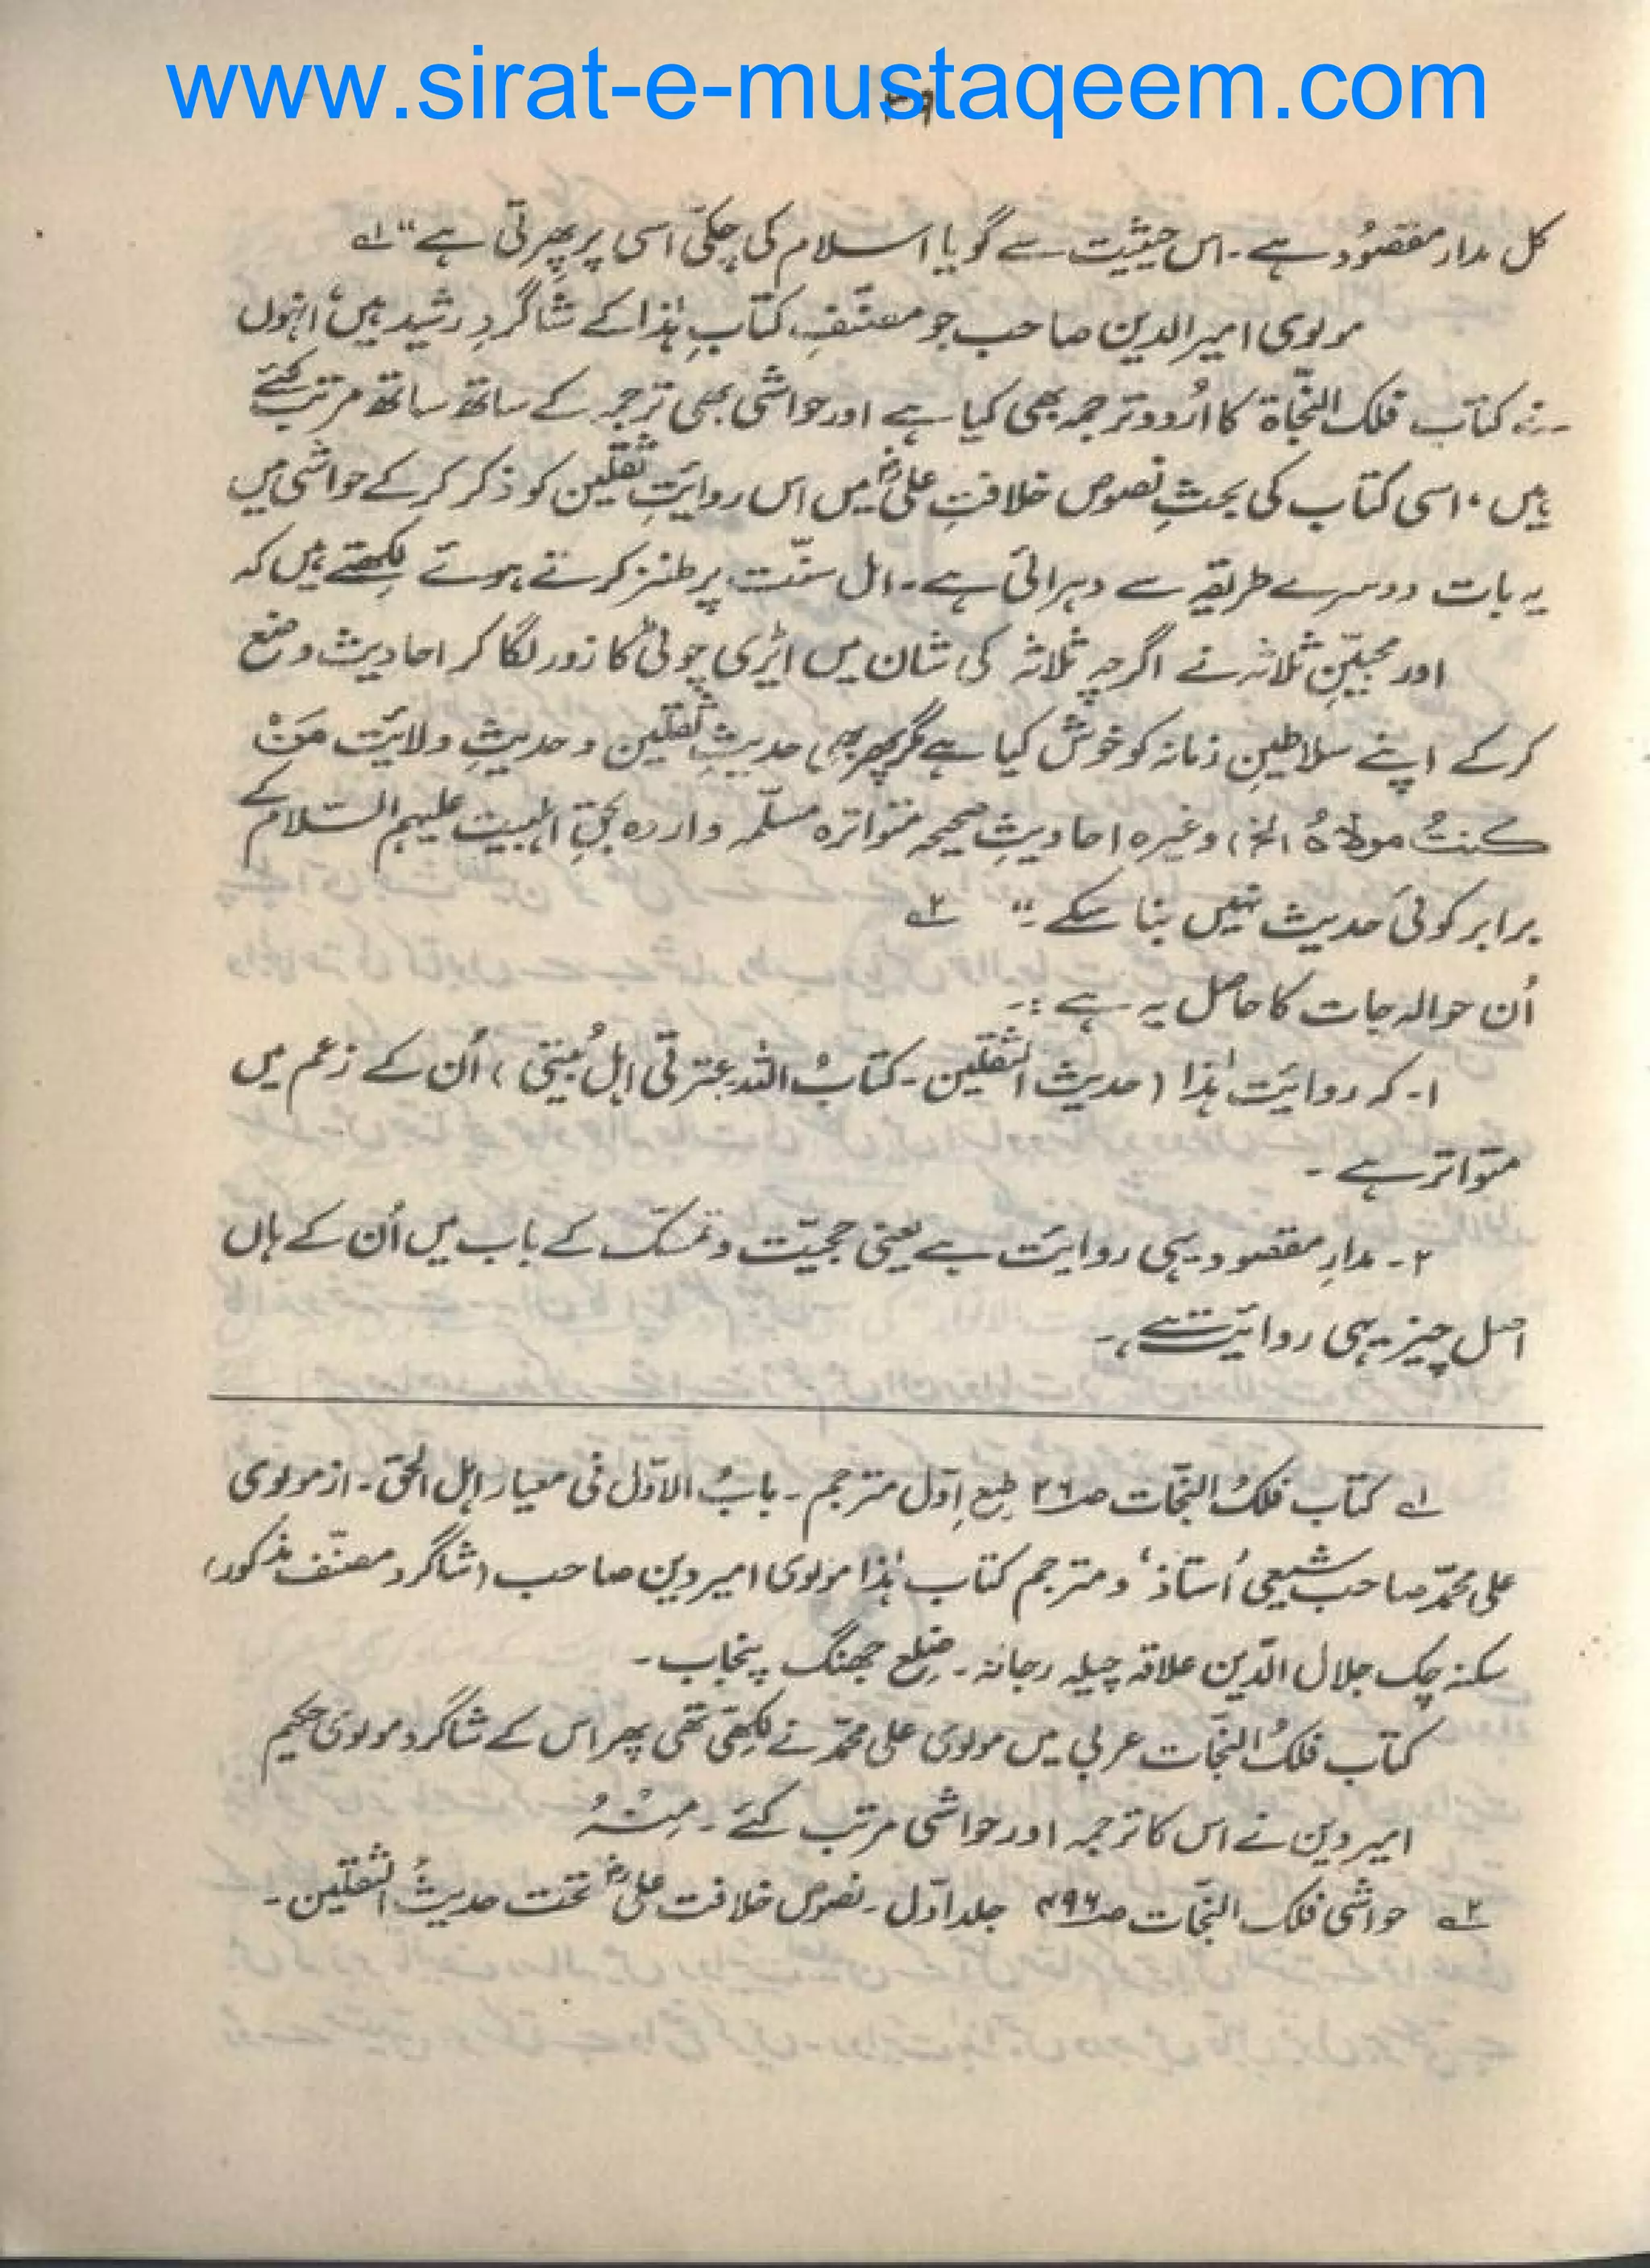 www.sirat-e-mustaqeem.com
کل مدار مقصُود ہے۔ اس حیثیت سے گویا اسلام کی چکّی اسی پر پھرتی ہے“ ۱ے
مولوی امیرالدین صاحب جو مصنّفِ کتابِ ہٰذا کے شاگردِ رشید ہیں، انہوں
نے کتاب فلک النجّاۃ کا اُردو ترجمہ بھی کیا ہے اور حواشی بھی ترجمہ کے ساتھ ساتھ مرتب کئے
ہیں، اسی کتاب کی بحثِ نصوص خلافتِ علیؓ میں اس روایَتِ ثقلین کو ذکر کر کے حواشی میں
یہ بات دوسرے طریقے سے دہرائی ہے۔ اہل سنّت پر طنز کرتے ہوئے لکھتے ہیں کہ
اور محبیّنِ ثلاثہ نے اگرچہ ثلاثہ کی شان میں ایڑی چوٹی کا زور لگا کر احادیث وضع
کر کے اپنے سلاطینِ زمانہ کو خوش کیا ہے مگر پھر بھی حدیثِ ثقلین و حدیثِ ولایَت مَنْ
کنتُ مولاہُ الخ) وغیرہ احادیثِ صحیحہ متواترہ مسلّمہ واردہ بحقِ اہلبیت علیہم السّلام کے
برابر کوئی حدیث نہیں بنا سکے۔“ ۲ے
اُن حوالہ جات کا حاصل یہ ہے :۔
۱۔ کہ روایَت ہٰذا (حدیث الثقلین۔ کتابُ اللہ عترتی اہلُ بیتی) اُن کے زعم میں
متواتر ہے ۔
۲۔ مدارِ مقصود یہی روایَت ہے یعنی حجیّت و تمسّک کے باب میں اُن کے ہاں
اصل چیز یہی روایَت ہے ۔
۱ے کتاب فلکُ النجّات صـ۲۶ طبع اوّل مترجم۔ بابُ الاوّل فی معیار اہل الحق۔ از مولوی
علی محمّد صاحب شیعی اُستاذ، و مترجم کتاب ہٰذا مولوی امیر دین صاحب (شاگرد مصنّف مذکور)
سکنہ چک جلال الدّین علاقہ چیلہ رجانہ۔ ضلع جھنگ پنجاب ۔
کتاب فلکُ النجّات عربی میں مولوی علی محمّد نے لکھی تھی پھر اس کے شاگرد مولوی حکیم
امیر دین نے اس کا ترجمہ اور حواشی مرتب کئے۔ مِنْہُ
۲ے حواشی فلک النجّات صـ۴۹۶ جلد اوّل۔ نصوص خلافت علیؓ تحت حدیثُ الثقلین ۔